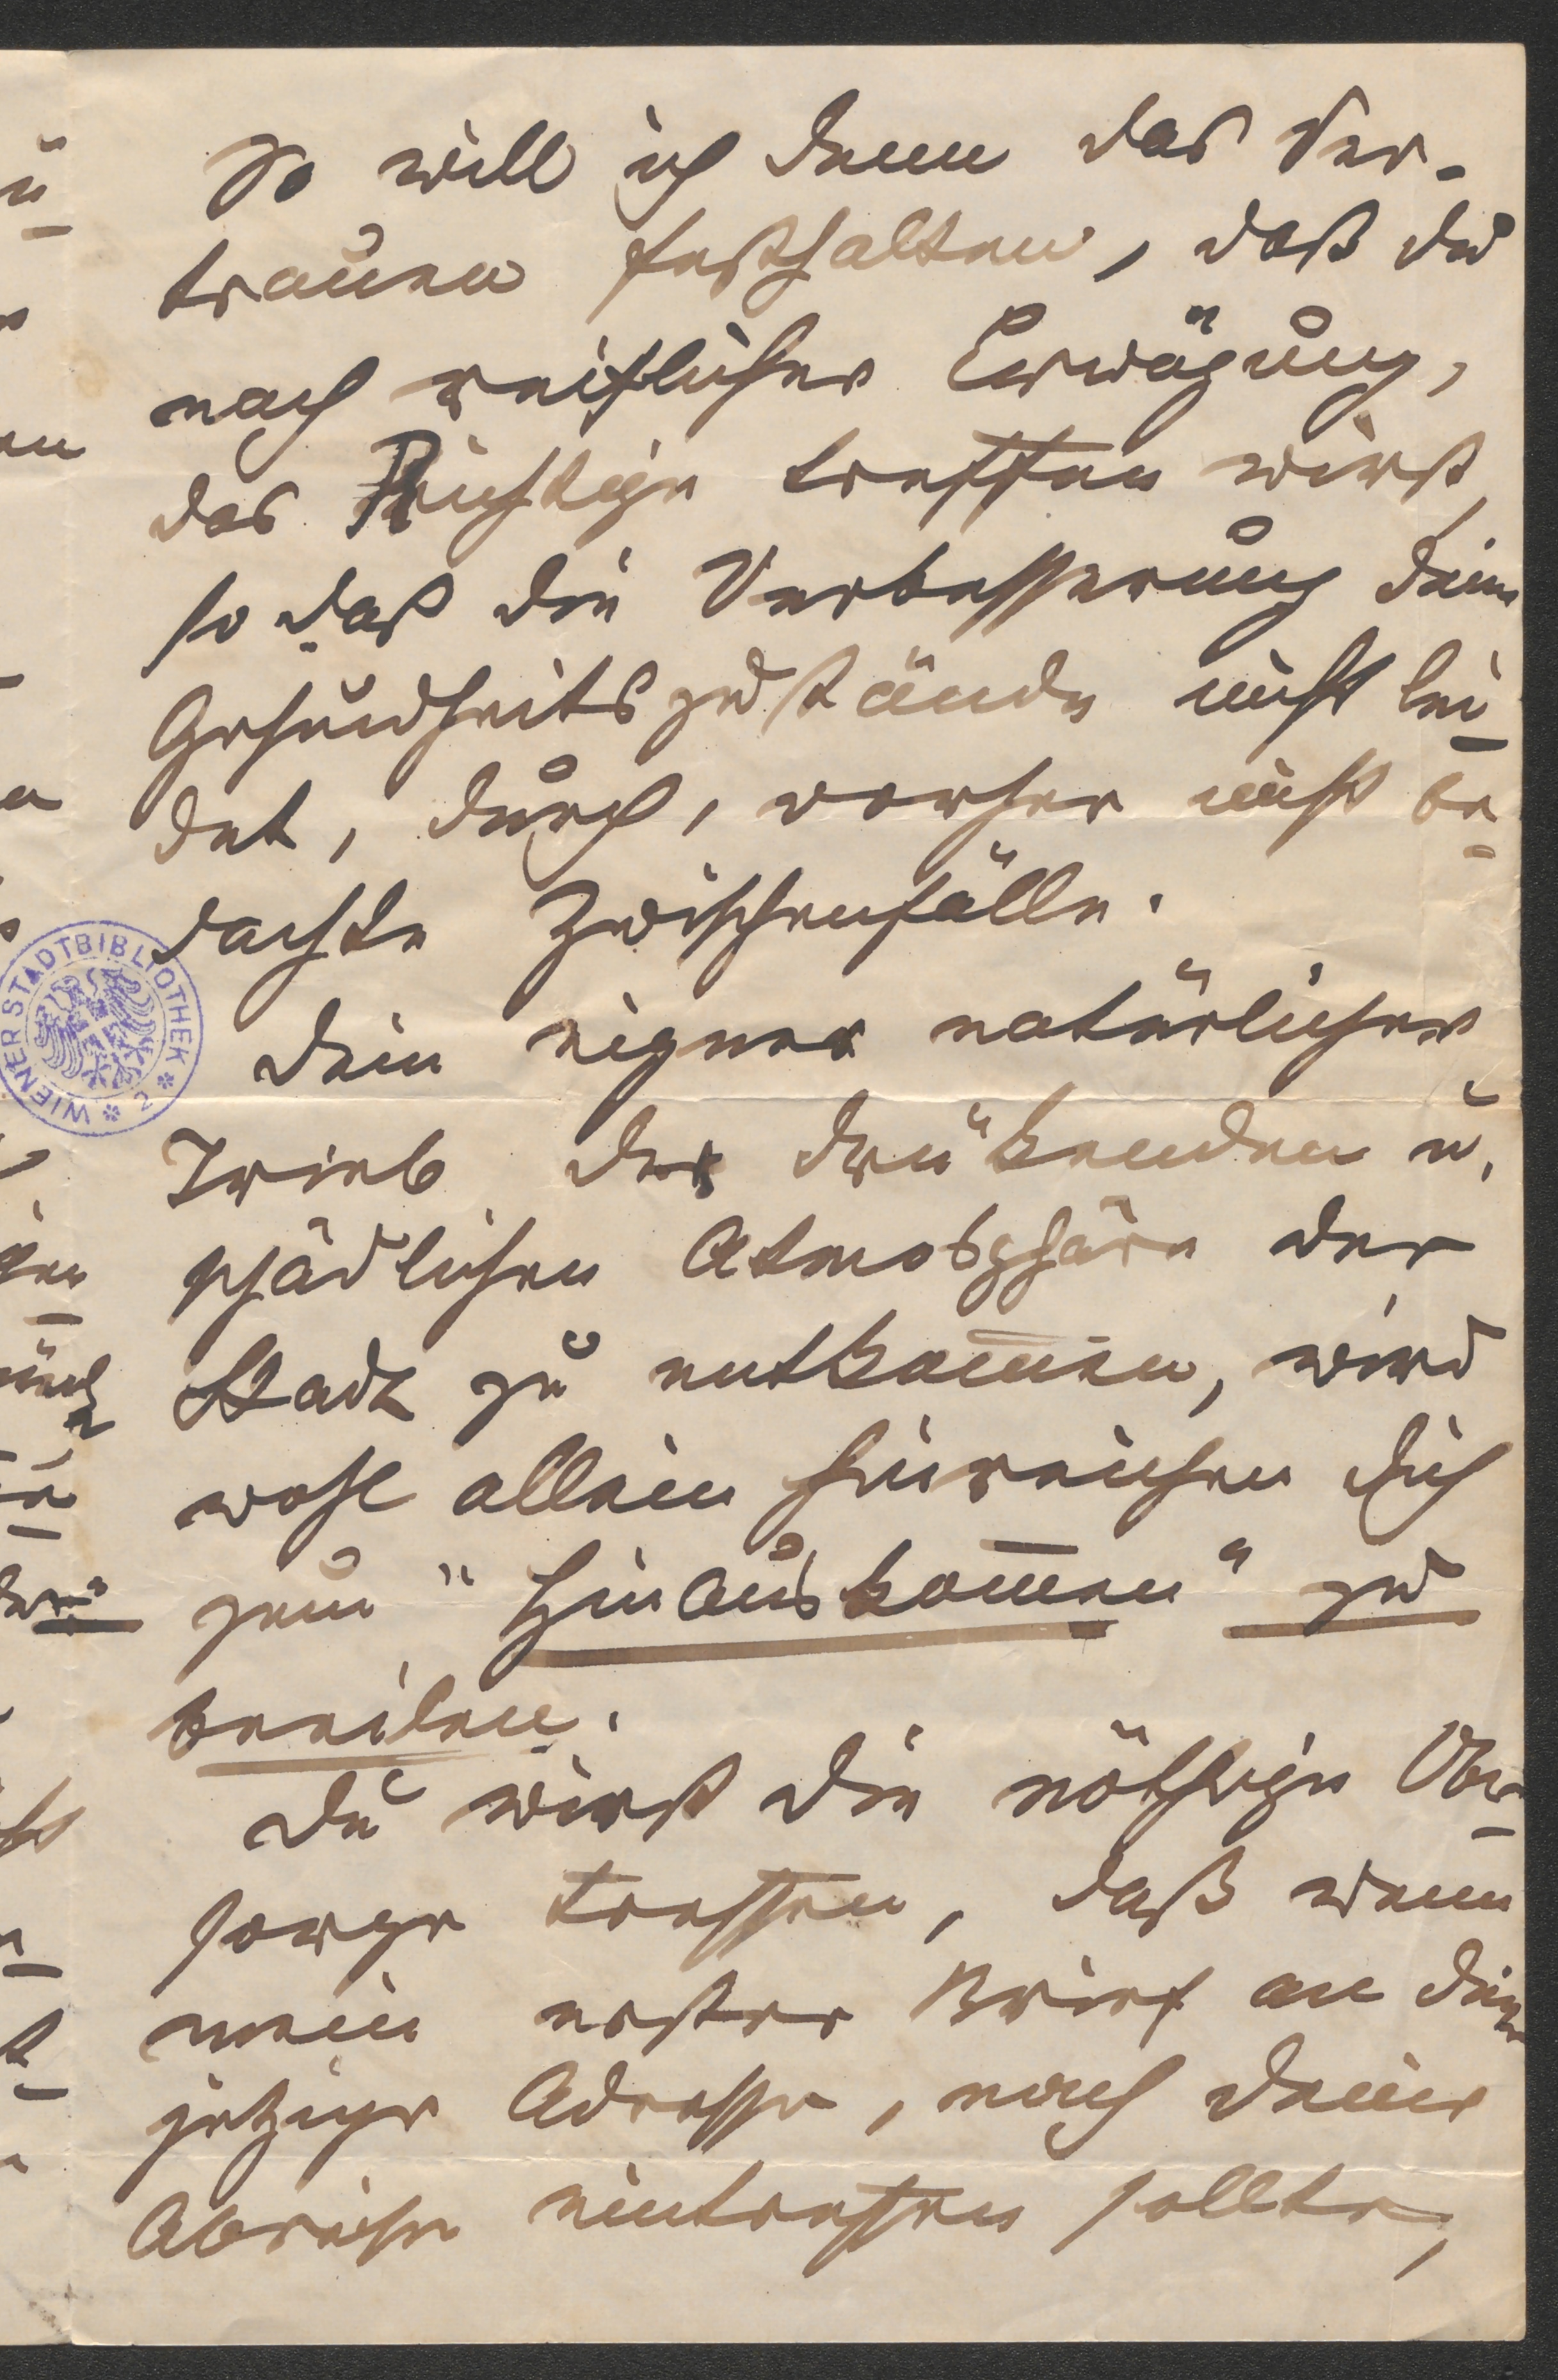 So will ich denn das Ver-
trauen festhalten, daß du
nach reiflicher Erwägung,
das Richtige treffen wirst,
so daß die Verbesserung deine
Gesundheitszustände nicht lei-
det, durch, vorher nicht be-
dachte Zwischenfälle.
dein eigner natürlicher
Trieb der drükenden u.
schädlichen Atmosphäre der
Stadt zu entkom̅en, wird
wohl allein hinreichen dich
zum "Hinauskom̅en" zu
beeilen.
du wirst die nöthige Ob-
sorge treffen, daß wenn
mein erster Brief an deine
jetzige Adresse, nach deiner
Abreise eintreffen sollte,
WIENER STADTBIBLIOTHEK * 2 *